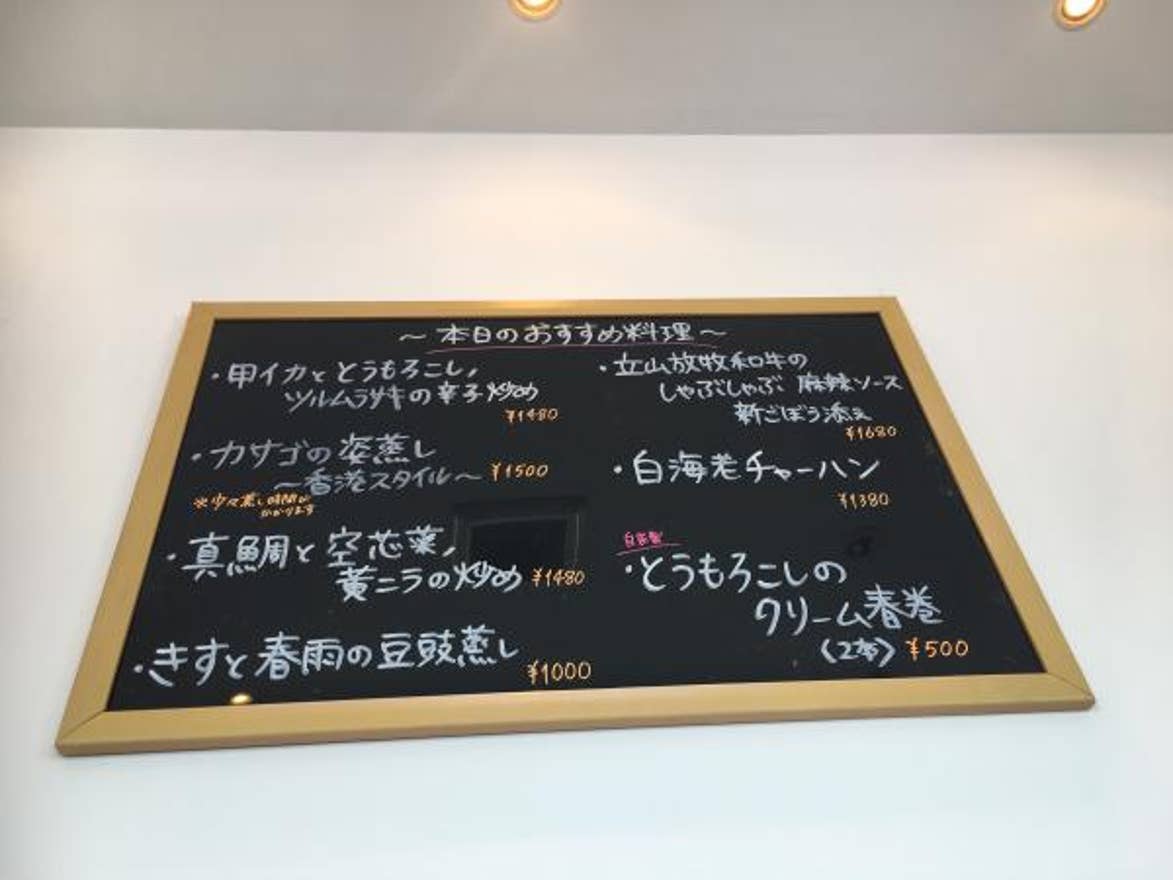 ～本日のおすすめ料理～
・甲イカととうもろこし、
ツルムラサキの辛子炒め
¥1480
・カサゴの姿蒸し
～香港スタイル～ ¥1500
※少々蒸し時間が
かかります
・真鯛と空芯菜、
黄ニラの炒め ¥1480
・きすと春雨の豆豉蒸し
¥1000
・立山放牧和牛の
しゃぶしゃぶ 麻辣ソース
新ごぼう添え
¥1680
・白海老チャーハン
¥1380
自家製
・とうもろこしの
クリーム春巻
(2本) ¥500